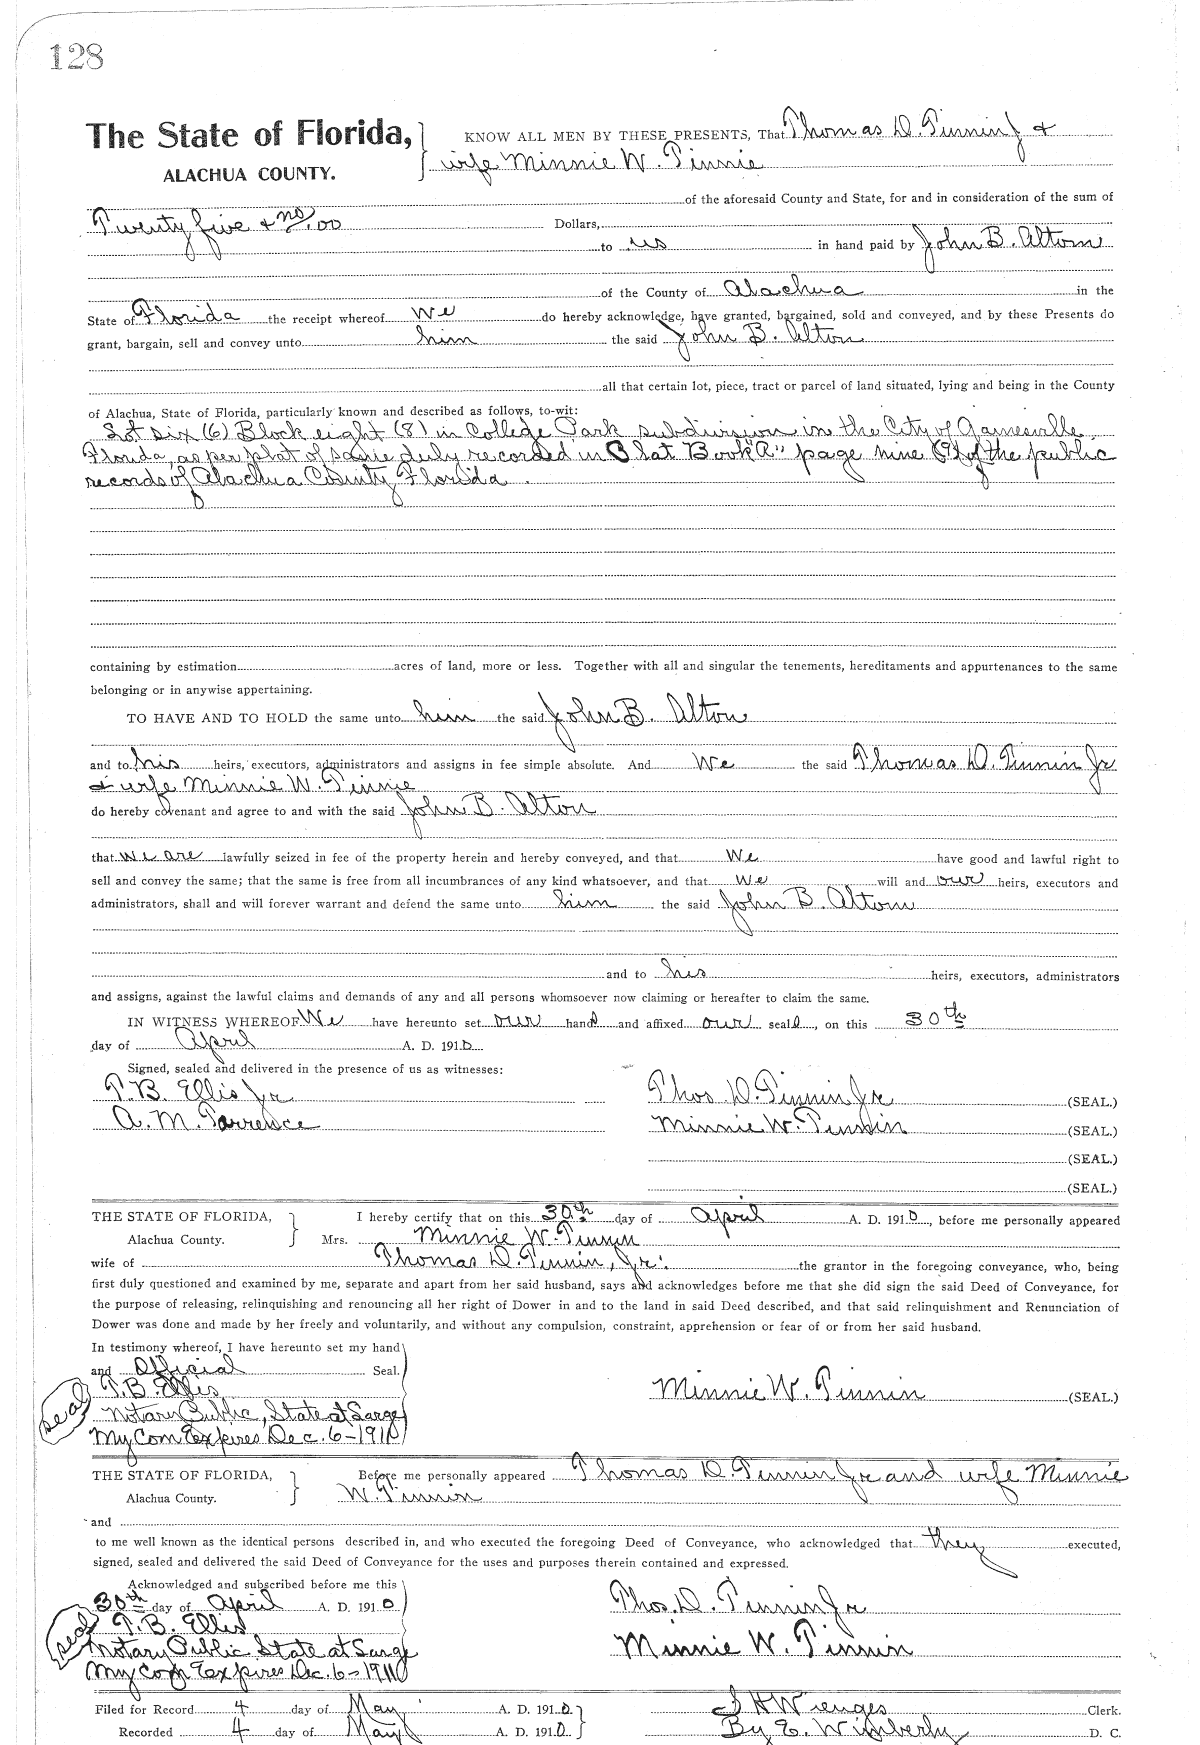 128
The State of Florida,
ALACHUA COUNTY.
KNOW ALL MEN BY THESE PRESENTS, That Thomas D. Tinnin Jr &
wife Minnie W. Tinnie
of the aforesaid County and State, for and in consideration of the sum of
Twenty five & no/00 Dollars,
to us in hand paid by John B. Altom
of the County of Alachua in the
State of Florida the receipt whereof we do hereby acknowledge, have granted, bargained, sold and conveyed, and by these Presents do
grant, bargain, sell and convey unto him the said John B. Alton
all that certain lot, piece, tract or parcel of land situated, lying and being in the County
of Alachua, State of Florida, particularly known and described as follows, to-wit:
Lot six (6) Block eight (8) in College Park subdivision in the City of Gainesville
Florida, as per plat of same duly recorded in Plat Book "A" page nine (9) of the public
records of Alachua County Florida.
containing by estimation acres of land, more or less. Together with all and singular the tenements, hereditaments and appurtenances to the same
belonging or in anywise appertaining.
TO HAVE AND TO HOLD the same unto him the said John B. Alton
and to his heirs, executors, administrators and assigns in fee simple absolute. And We the said Thomas D. Tinnin Jr
& wife Minnie W. Tinnie
do hereby covenant and agree to and with the said John B. Alton
that we are lawfully seized in fee of the property herein and hereby conveyed, and that we have good and lawful right to
sell and convey the same; that the same is free from all incumbrances of any kind whatsoever, and that we will and our heirs, executors and
administrators, shall and will forever warrant and defend the same unto him the said John B. Altom
and to his heirs, executors, administrators
and assigns, against the lawful claims and demands of any and all persons whomsoever now claiming or hereafter to claim the same.
IN WITNESS WHEREOF We have hereunto set our hand and affixed our seal, on this 30th
day of April A. D. 1910
Signed, sealed and delivered in the presence of us as witnesses:
T. B. Ellis Jr Thos D. Tinnin Jr (SEAL.)
A. M. Torrence Minnie W. Tinnin (SEAL.)
(SEAL.)
(SEAL.)
THE STATE OF FLORIDA, I hereby certify that on this 30th day of April A. D. 1910, before me personally appeared
Alachua County. Mrs. Minnie W. Tinnin
wife of Thomas D. Tinnin, Jr. the grantor in the foregoing conveyance, who, being
first duly questioned and examined by me, separate and apart from her said husband, says and acknowledges before me that she did sign the said Deed of Conveyance, for
the purpose of releasing, relinquishing and renouncing all her right of Dower in and to the land in said Deed described, and that said relinquishment and Renunciation of
Dower was done and made by her freely and voluntarily, and without any compulsion, constraint, apprehension or fear of or from her said husband.
In testimony whereof, I have hereunto set my hand
and Official Seal.
T. B. Ellis Minnie W. Tinnin (SEAL.)
seal Notary Public, State at Large
My Com Expires Dec. 6-1910
THE STATE OF FLORIDA, Before me personally appeared Thomas D. Tinnin Jr and wife Minnie
Alachua County. W. Tinnin
and
to me well known as the identical persons described in, and who executed the foregoing Deed of Conveyance, who acknowledged that they executed,
signed, sealed and delivered the said Deed of Conveyance for the uses and purposes therein contained and expressed.
Acknowledged and subscribed before me this
30th day of April A. D. 1910 Thos. D. Tinnin Jr
seal T. B. Ellis
Notary Public State at Large Minnie W. Tinnin
My Com Expires Dec. 6-1910
Filed for Record 4 day of May A. D. 1910 S H Wienges Clerk.
Recorded 4 day of May A. D. 1910 By E. Wimberly D. C.